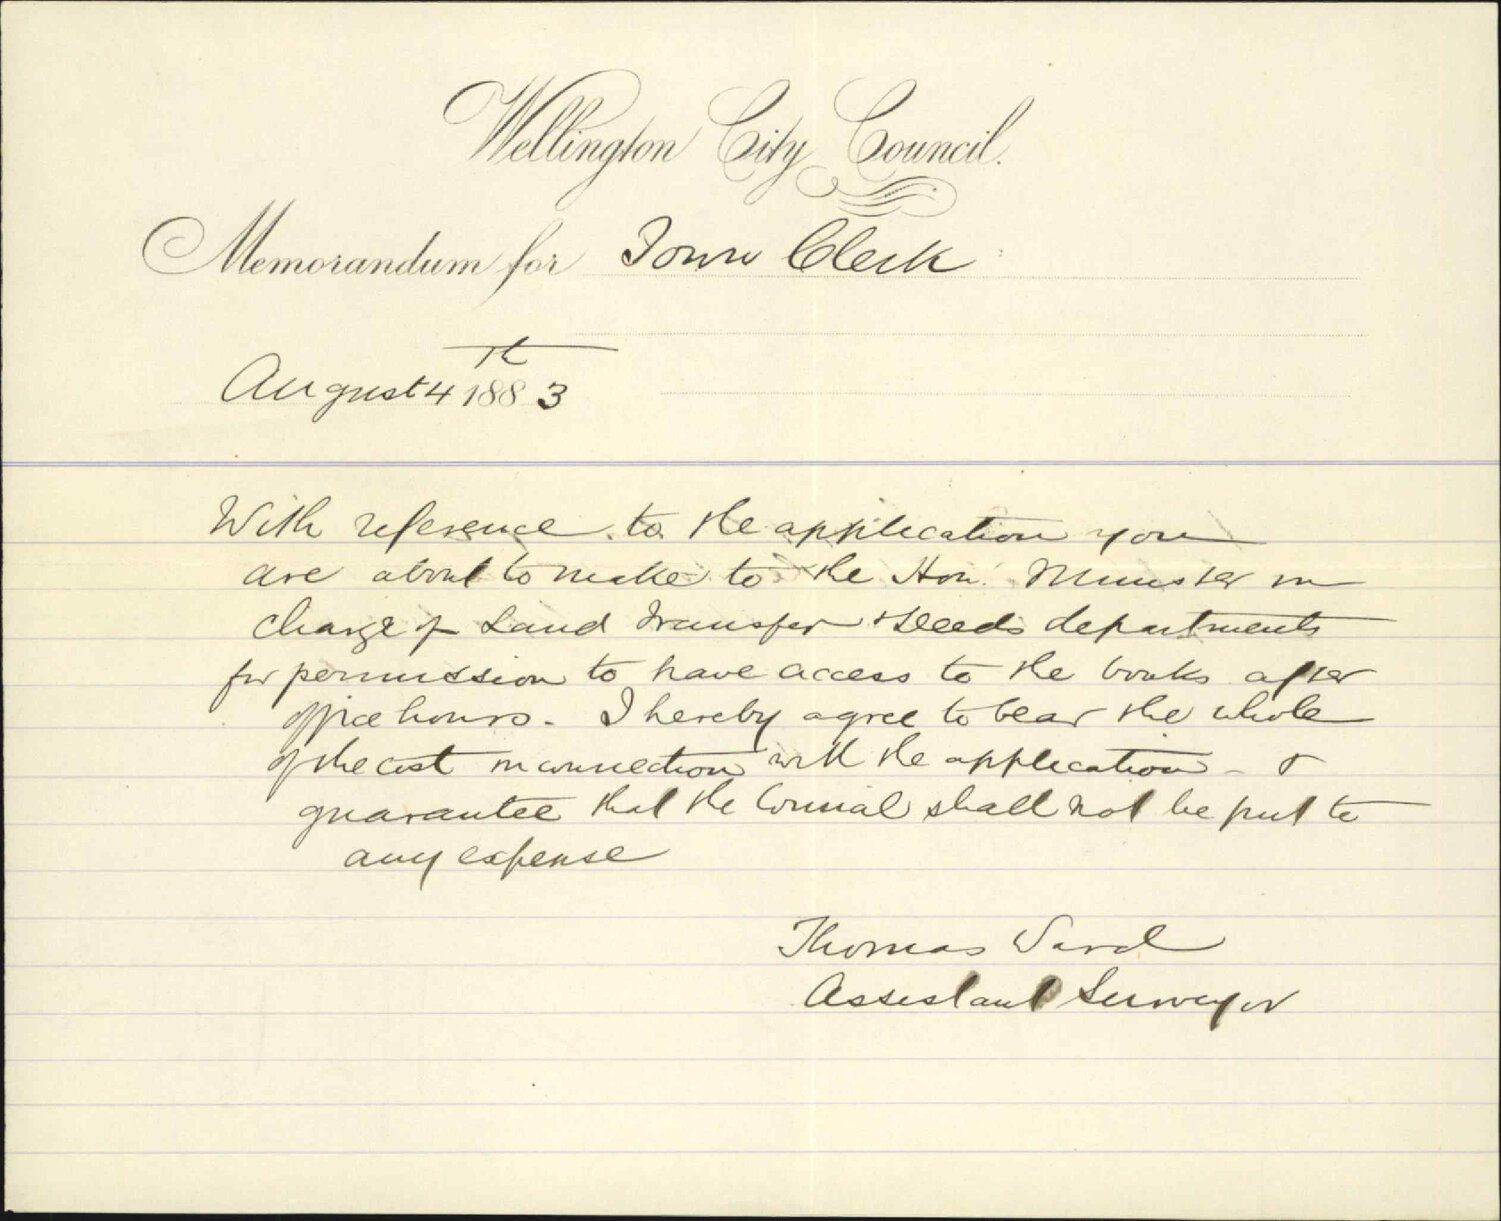 Wellington City Council.
Memorandum for Town Clerk
August 4th 1883
With reference to the application you
are about to make to the Hon. Minister in
charge of Land Transfer & Deeds departments
for permission to have access to the books after
office hours - I hereby agree to bear the whole
of the cost in connection with the application - &
guarantee that the Council shall not be put to
any expense
Thomas Ward
Assistant Surveyor